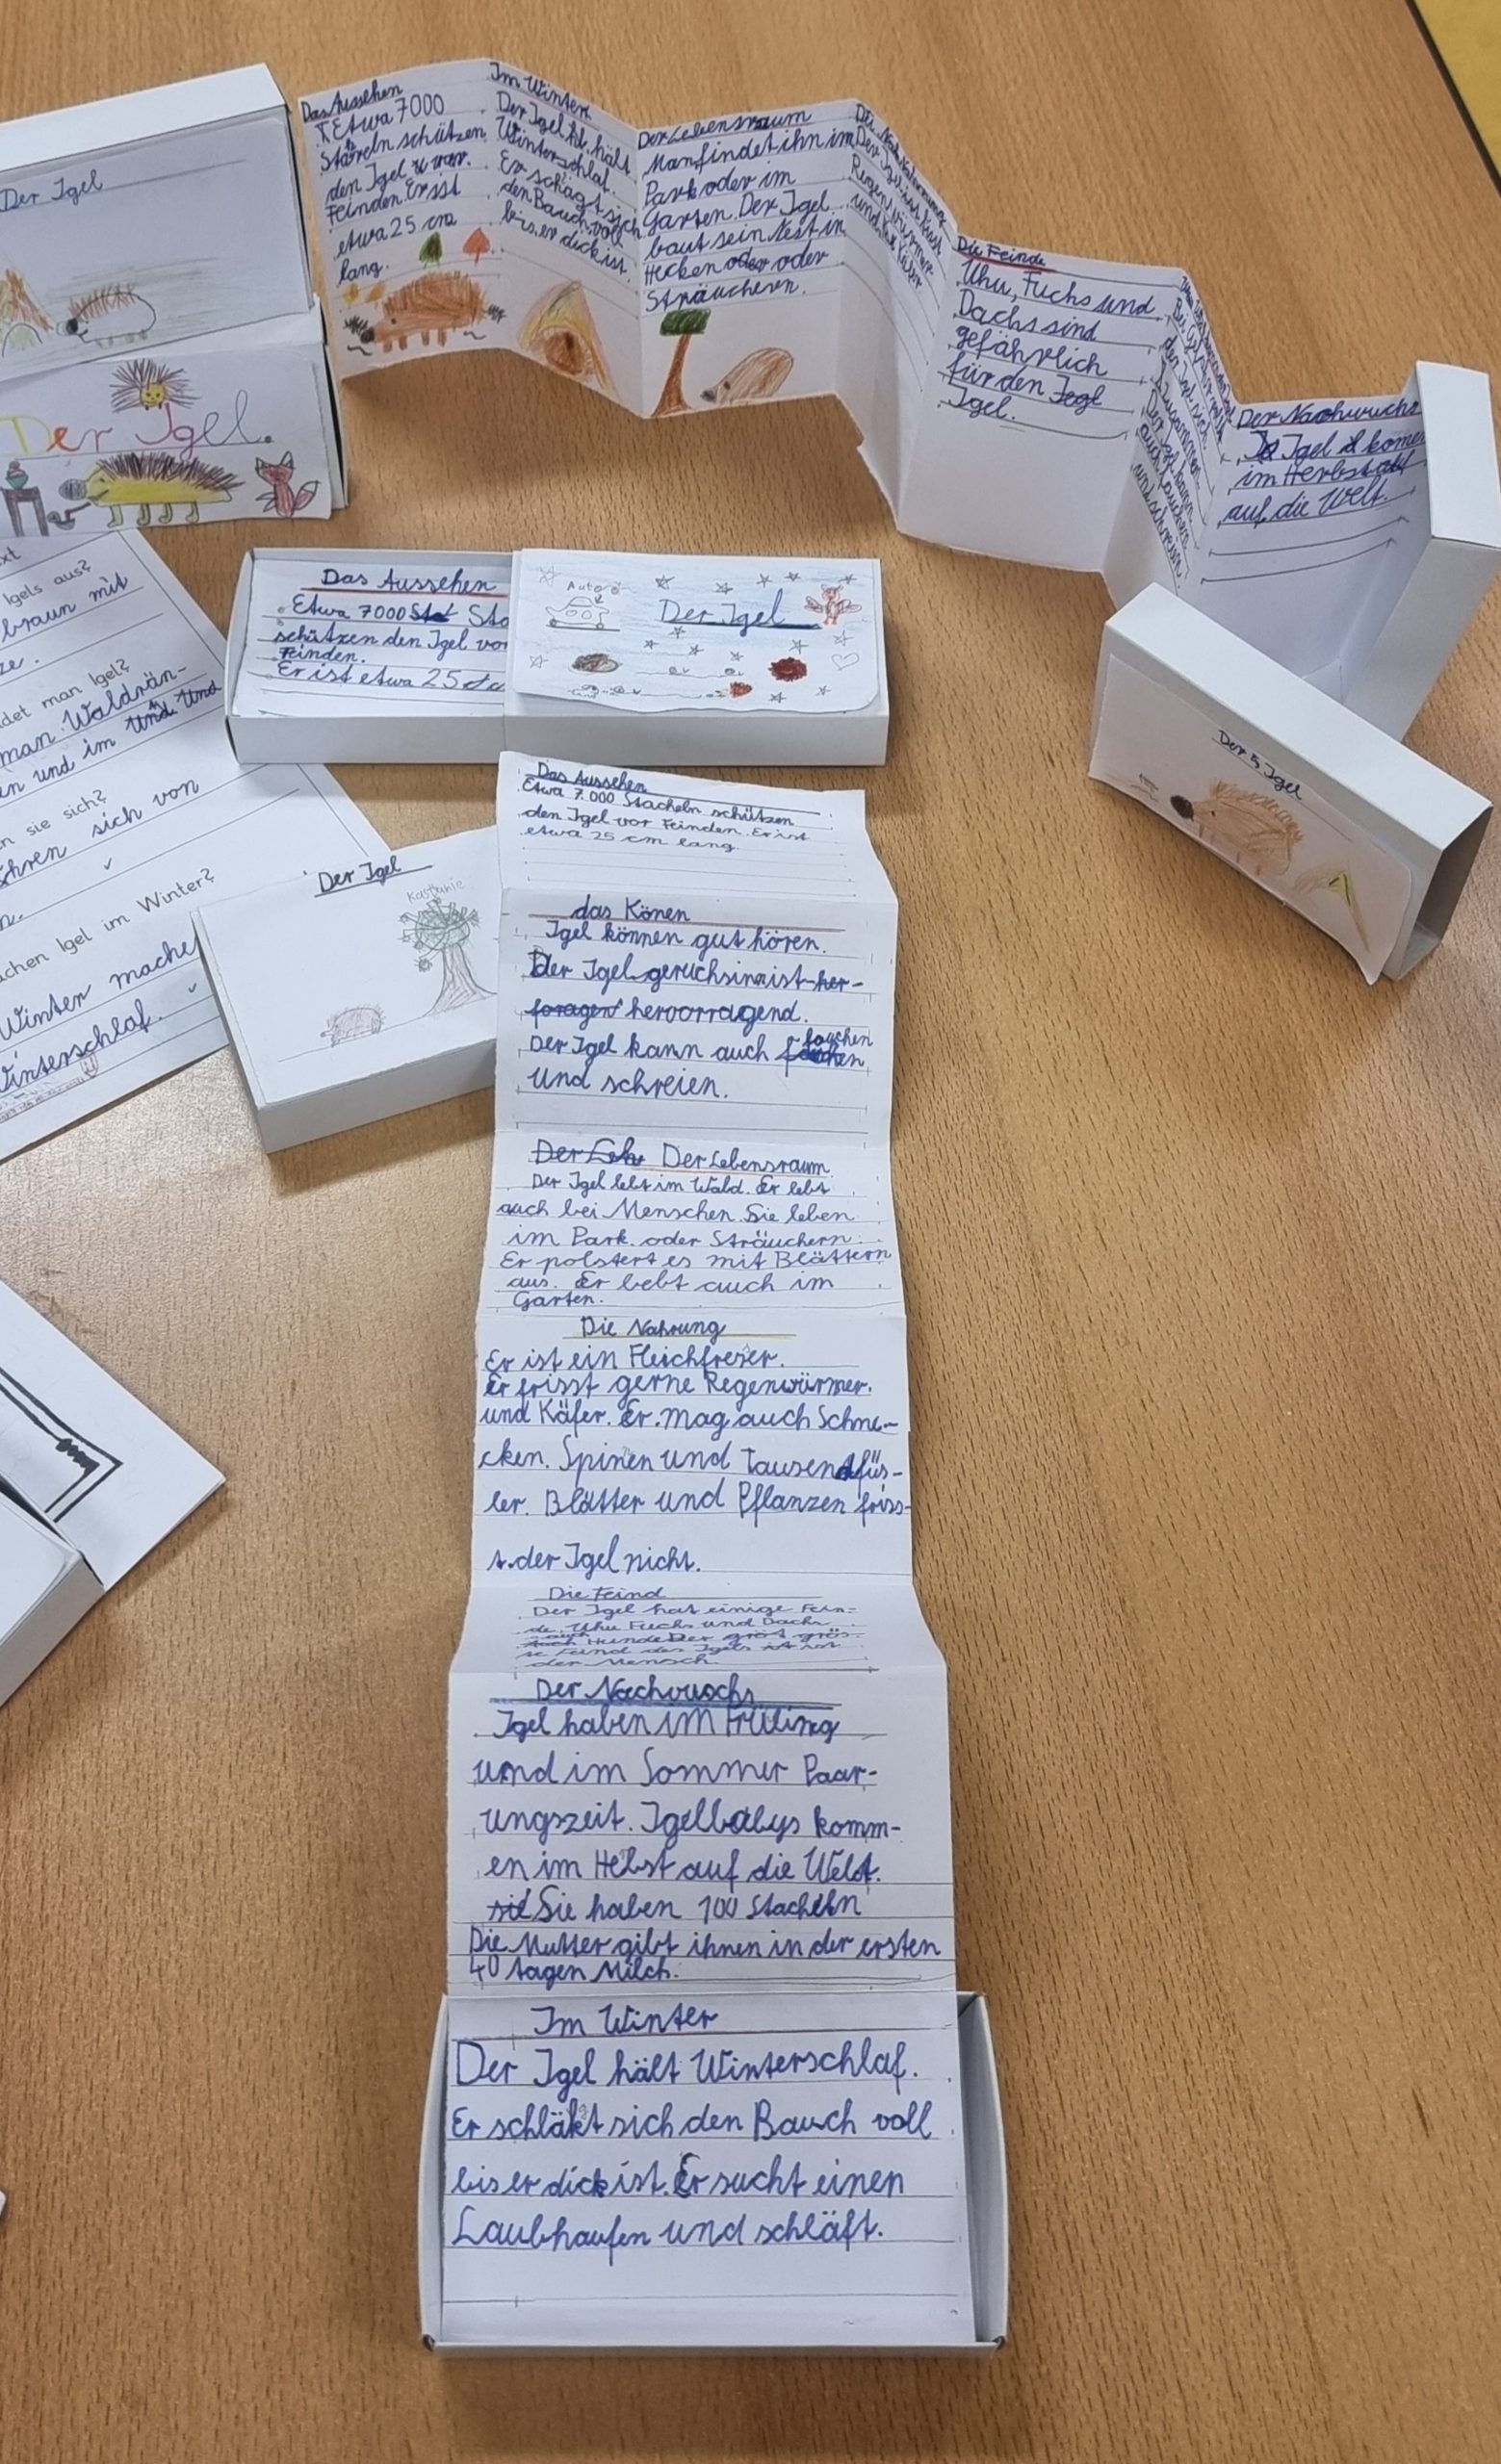 Der Igel
Der Igel.
Das Aussehen
Etwa 7000
Stacheln schützen
den Igel vor
Feinden. Er ist
etwa 25 cm
lang.
Im Winter
Der Igel hält
Winterschlaf.
Er schägt sich
den Bauch voll
bis er dick ist.
Der Lebensraum
Man findet ihn im
Park oder im
Garten. Der Igel
baut sein Nest in
Hecken oder oder
Sträuchern.
Regenwürmer
und Käfer
Die Feinde
Uhu, Fuchs und
Dachs sind
gefährlich
für den Jegl
Igel.
zusammen.
Der Igel kann
auch fauchen
und schreien.
Der Nachwuchs
Igel kome
im Herbst auf
auf die Welt.
Igels aus?
braun mit
det man Igel?
man Waldrän-
n und im Und Und
n sie sich?
hren sich von
achen Igel im Winter?
Winter mache
Winterschlaf.
Das Aussehen
Etwa 7000 Stat Sta
schützen den Igel vor
Feinden.
Er ist etwa 25
Autoro
Der Igel
Der 5 Igel
Der Igel
Kastanie
Das Aussehen
Etwa 7.000 Stacheln schützen
den Igel vor Feinden. Er ist
etwa 25 cm lang.
das Könen
Igel können gut hören.
Der Igel geruchsinn ist her-
foragen hervorragend.
Der Igel kann auch fauchen
und schreien.
Der Leb Der Lebensraum
Der Igel lebt im Wald. Er lebt
auch bei Menschen. Sie leben
im Park oder Sträuchern.
Er polstert es mit Blättern
aus. Er lebt auch im
Garten.
Die Nahrung
Er ist ein Fleichfreser.
Er frisst gerne Regenwürmer.
und Käfer. Er mag auch Schne-
cken. Spinen und Tausendfüs-
ler. Blätter und Pflanzen friss-
t der Igel nicht.
Die Feind
Der Igel hat einige Fein-
de. Uhu Fuchs und Dachs
auch Hunde Der gröst grös-
te Feind des Igels ist
der Mensch.
Der Nachwuschs
Igel haben im Früling
und im Sommer Paar-
ungszeit. Igelbabys komm-
en im Hebst auf die Welt.
sie Sie haben 100 Stacheln
Die Mutter gibt ihnen in der ersten
40 tagen Milch.
Im Winter
Der Igel hält Winterschlaf.
Er schläkt sich den Bauch voll
bis er dick ist. Er sucht einen
Laubhaufen und schläft.